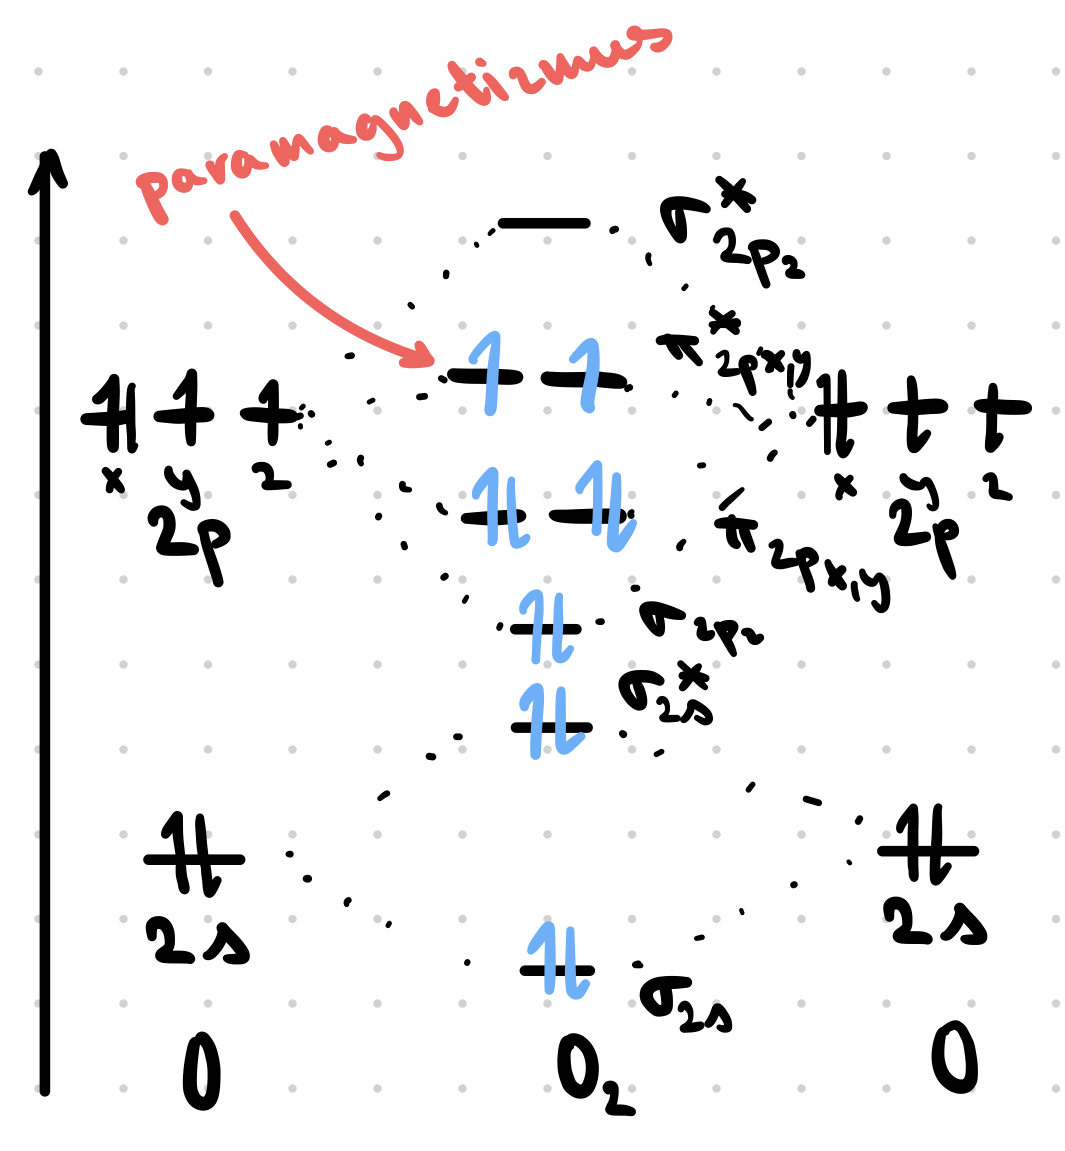 paramagnetizmus
σ*2pz
π*2px,y
x y z
2p
x y z
2p
π2px,y
σ2pz
σ*2s
2s
2s
σ2s
O
O2
O